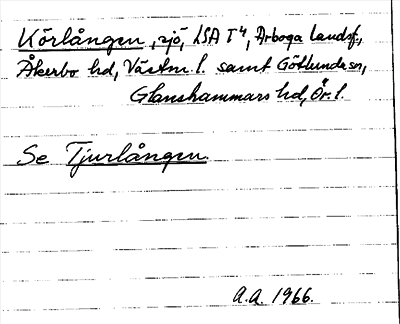 Körlången, sjö, LSA T4, Arboga landsf.,
Åkerbo hd, Västm. l. samt Götlunda sn,
Glanshammars hd, Ör. l.
Se Tjurlången.
A.A. 1966.